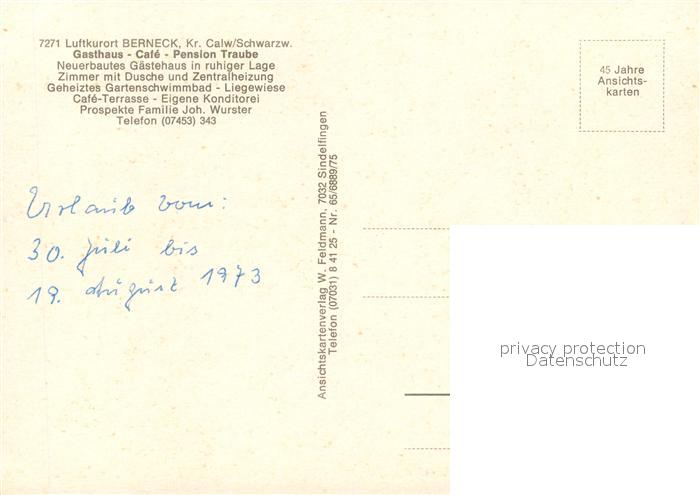 7271 Luftkurort BERNECK, Kr. Calw/Schwarzw.
Gasthaus - Café - Pension Traube
Neuerbautes Gästehaus in ruhiger Lage
Zimmer mit Dusche und Zentralheizung
Geheiztes Gartenschwimmbad - Liegewiese
Café-Terrasse - Eigene Konditorei
Prospekte Familie Joh. Wurster
Telefon (07453) 343
Urlaub vom:
30. Juli bis
19. August 1973
Ansichtskartenverlag W. Feldmann, 7032 Sindelfingen
Telefon (07031) 8 41 25 - Nr. 65/6889/75
45 Jahre
Ansichts-
karten
privacy protection
Datenschutz